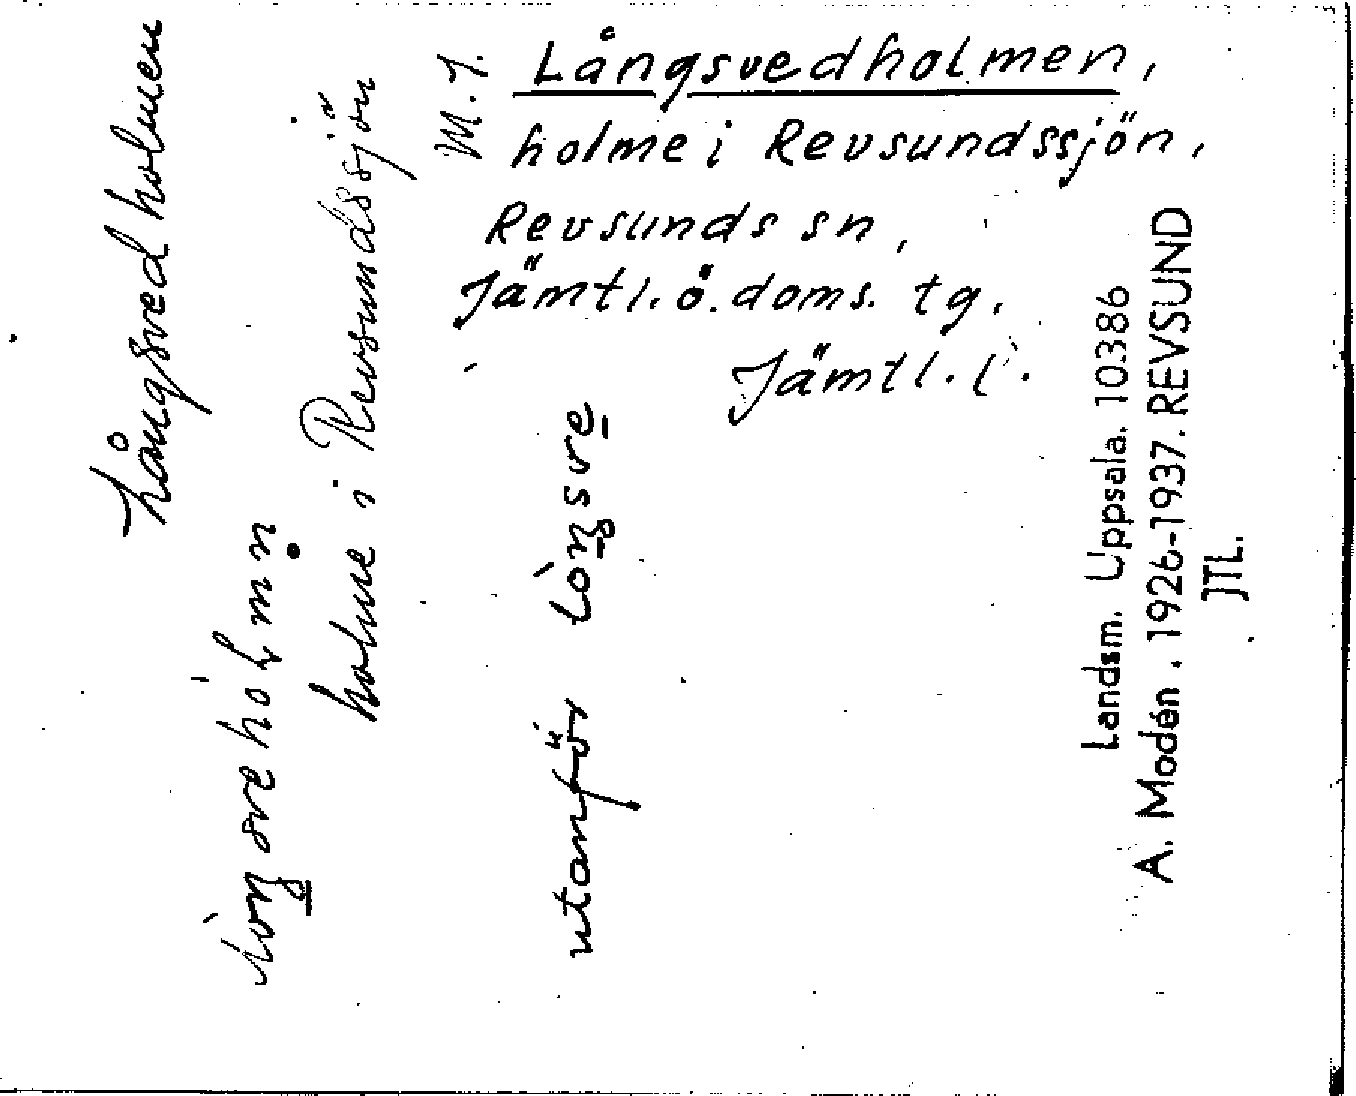 Långsvedholmen,
holme i Revsundssjön,
Revsunds sn,
Jämtl. ö. doms. tg.
Jämtl. l.
Långsvedholmen
holme i Revsundssjön
M. J.
utanför
Landsm. Uppsala. 10386
A. Modén. 1926-1937. REVSUND
JTL.